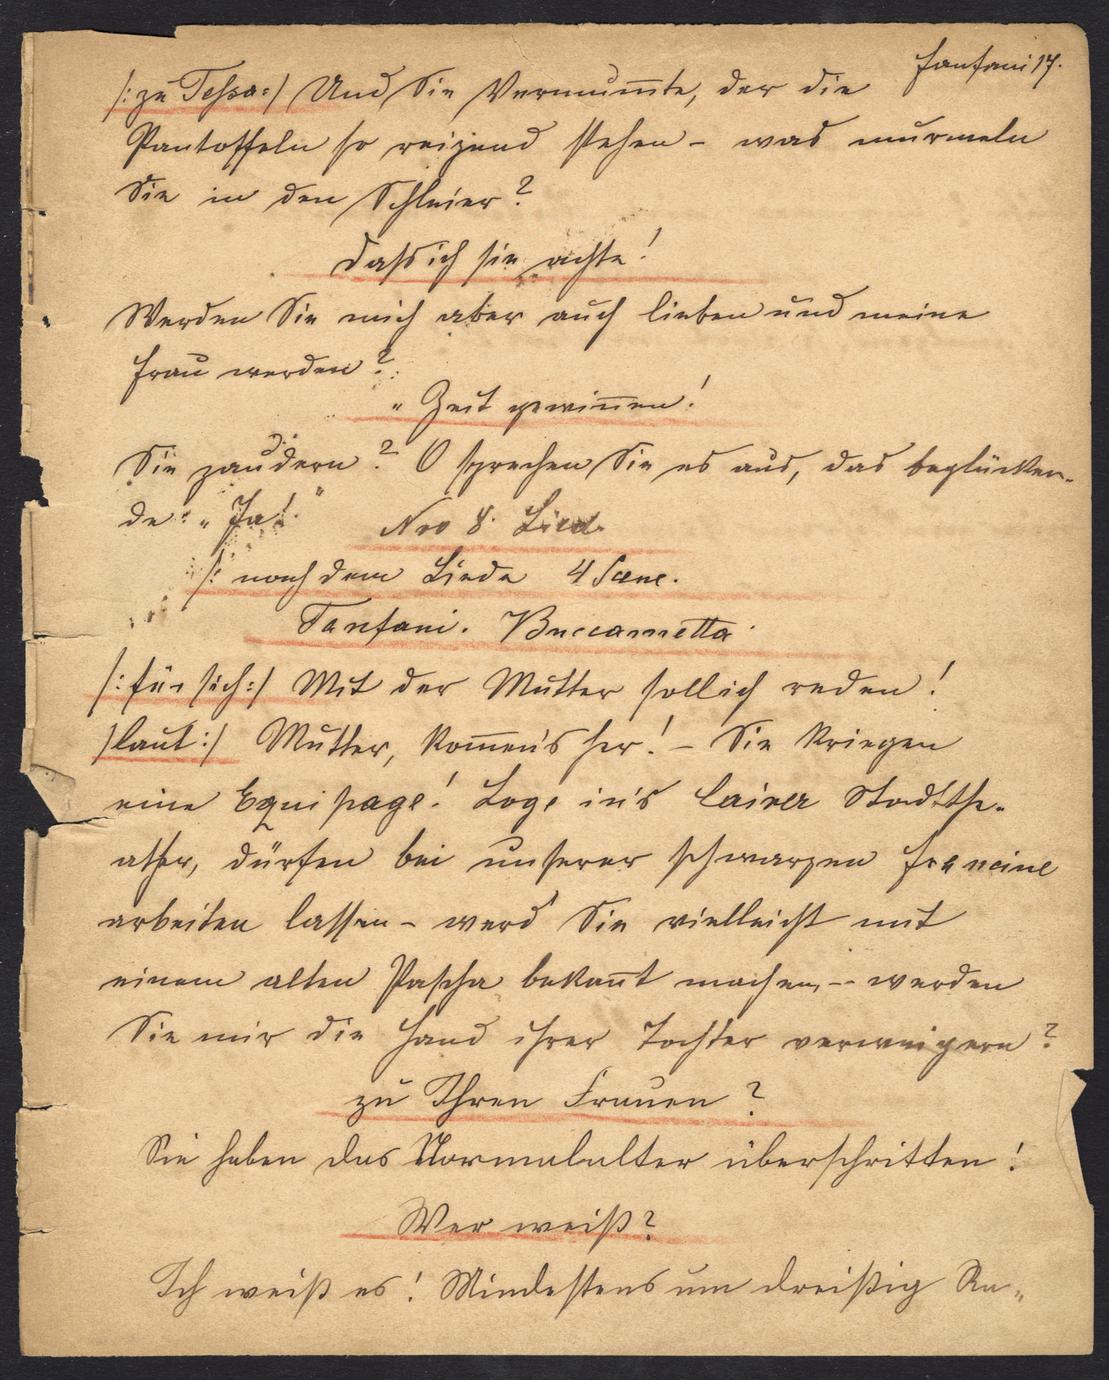 Fanfani 17.
/: zu Tessa :/ Und Sie Vermum̅te, der die
Pantoffeln so reizend stehen – was murmeln
Sie in den Schleier?
Dass ich sie achte!
Werden Sie mich aber auch lieben und meine
Frau werden?
„ Zeit gewin̅en!
Sie zaudern? O sprechen Sie es aus, das beglücken-
de: „Ja!"
Nro 8. Lied.
/: nach dem Liede 4 Scene.
Fanfani. Buccametta
/: für sich :/ Mit der Mutter soll ich reden!
/laut :/ Mutter, kom̅en's her! – Sie kriegen
eine Equipage! Loge in's Cairer Stadtthe-
ather, dürfen bei unserer schwarzen Francine
arbeiten lassen – werd' Sie vielleicht mit
einem alten Pascha bekan̅t machen, -- werden
Sie mir die Hand ihrer Tochter verweigern?
zu Ihren Frauen?
Sie haben das Normalalter überschritten!
Wer weiß?
Ich weiß es! Mindestens um dreißig Ra-